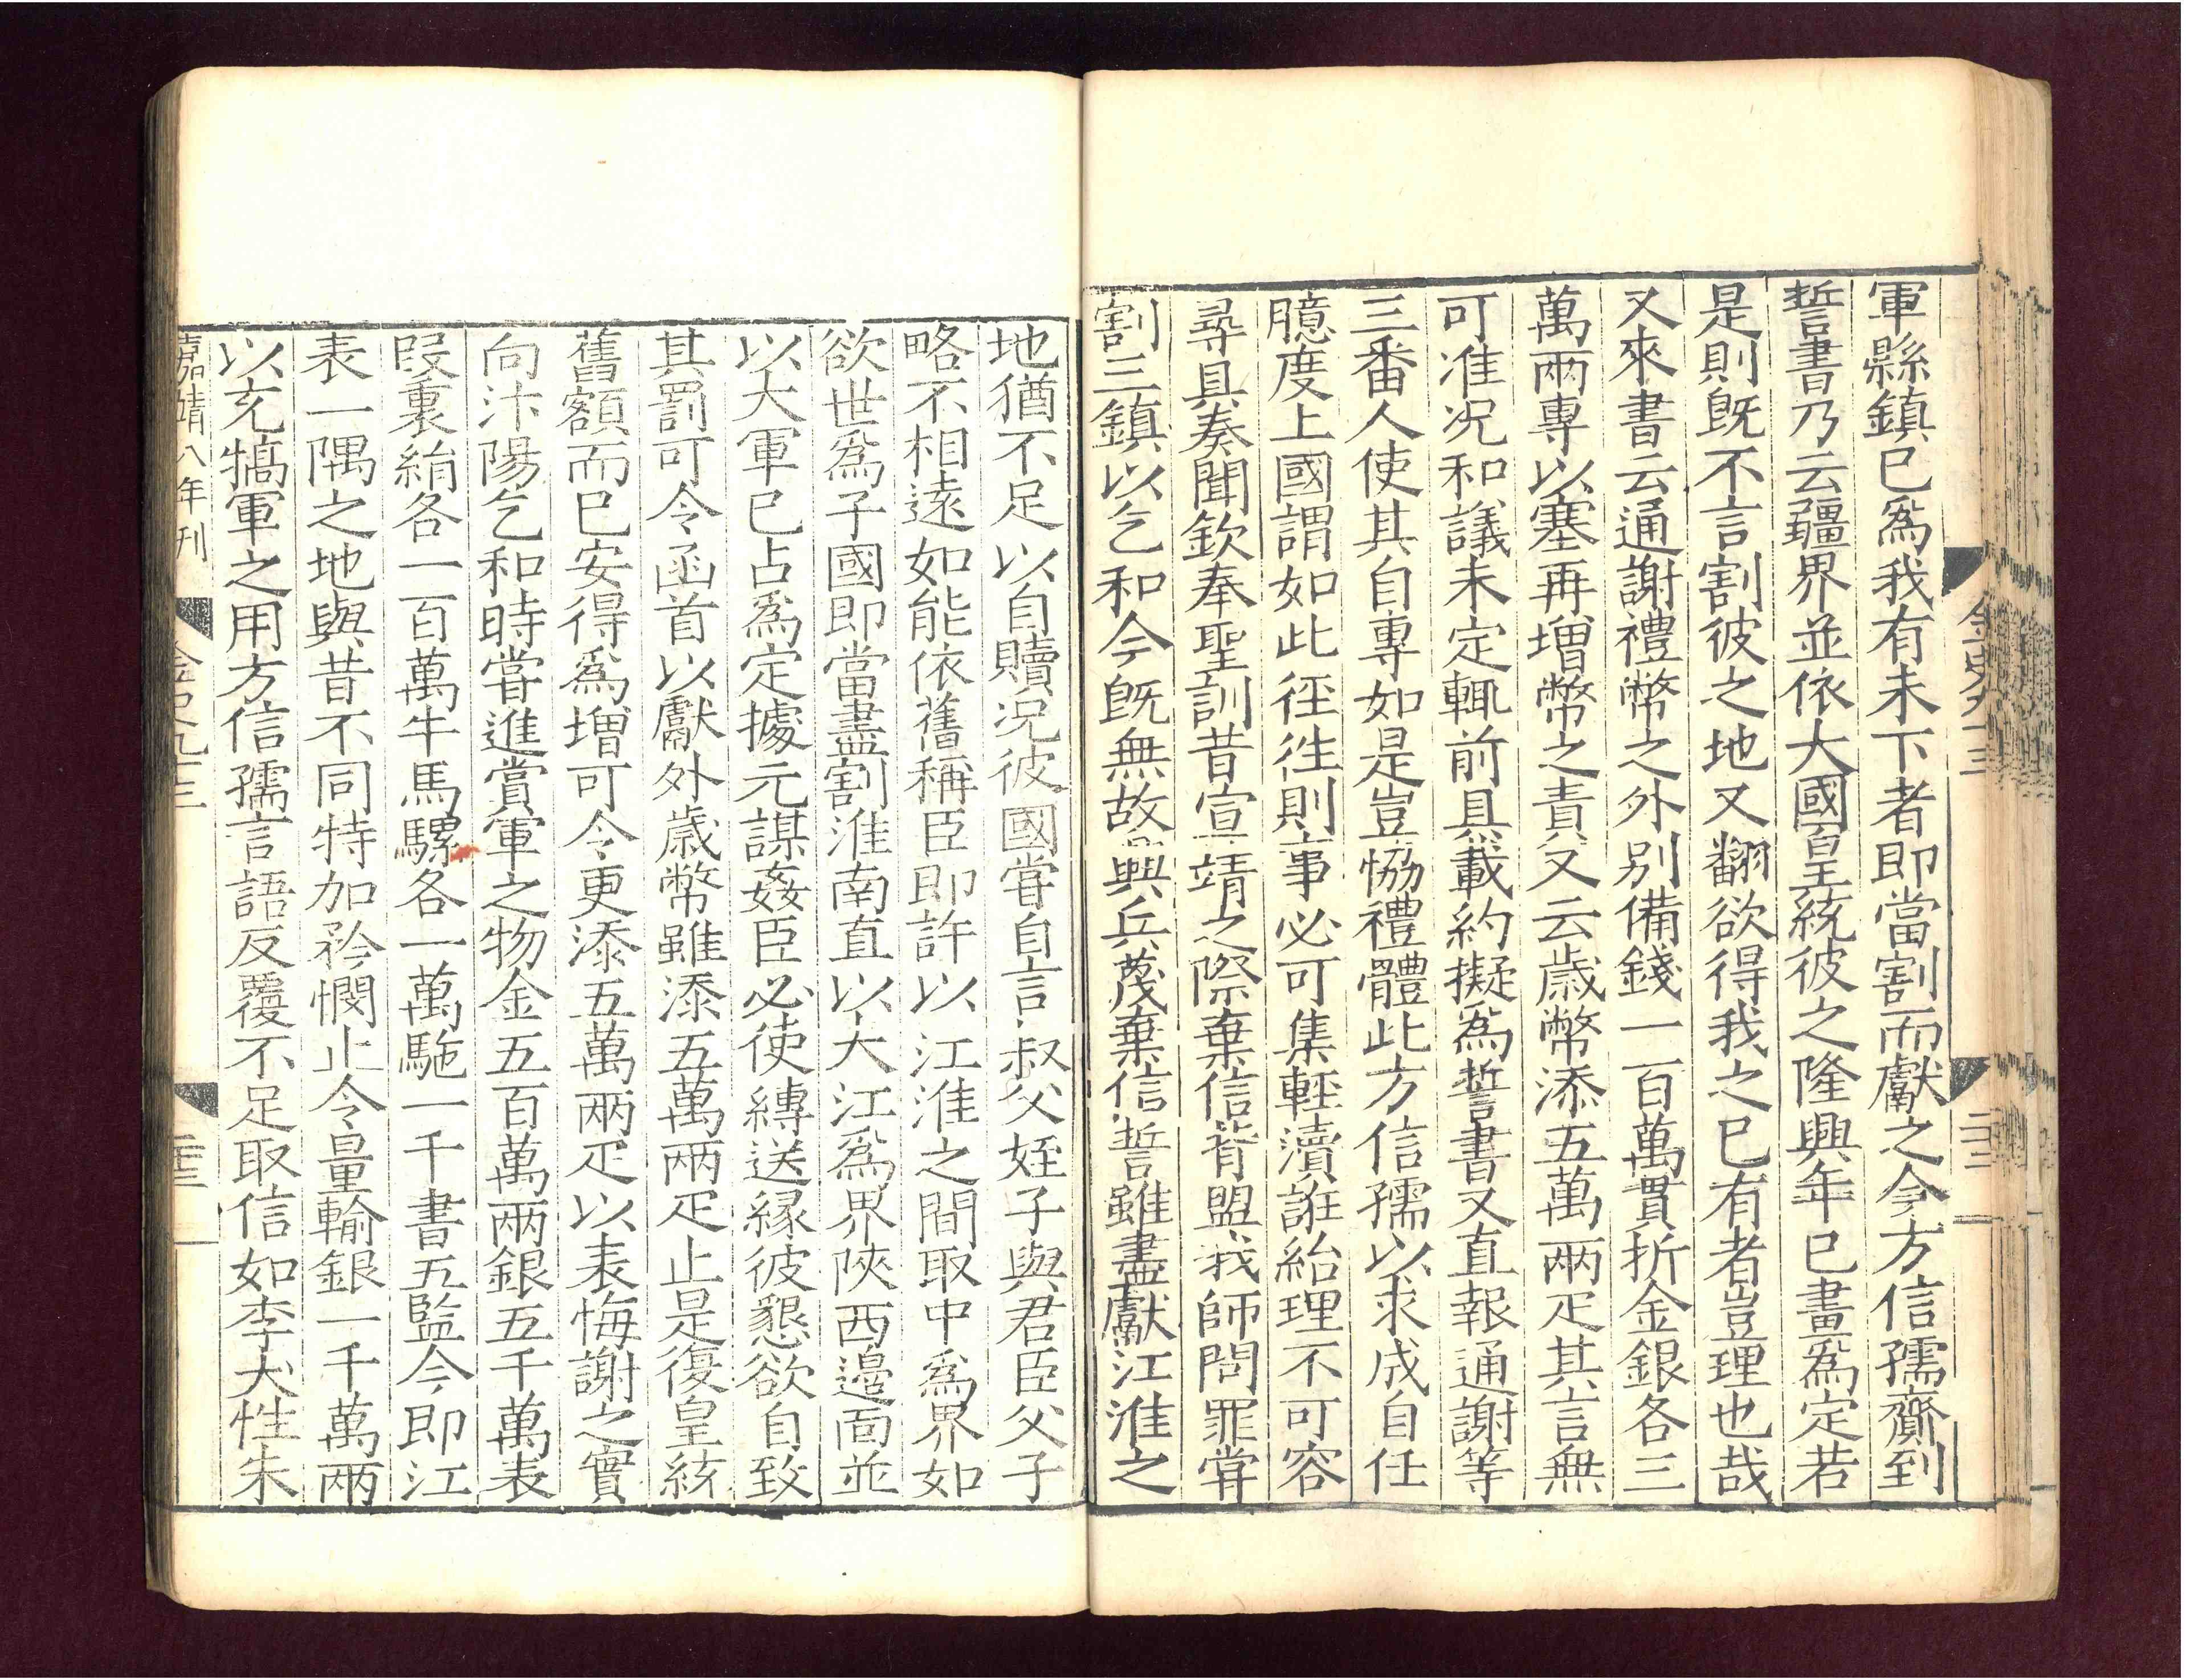 金史九十三
二十二
軍縣鎮巳爲我有未下者即當割而獻之今方信孺齎到
誓書乃云疆界並依大國皇統彼之隆興年巳畫爲定若
是則旣不言割彼之地又翻欲得我之巳有者豈理也哉
又來書云通謝禮幣之外别備錢一百萬貫折金銀各三
萬兩專以塞再增幣之責又云歳幣添五萬兩疋其言無
可准况和議未定輒前具載約擬爲誓書又直報通謝等
三番人使其自專如是豈恊禮體此方信孺以求成自任
臆度上國謂如此徃徃則事必可集輕瀆誑紿理不可容
尋具奏聞欽奉聖訓昔宣靖之際棄信背盟我師問罪甞
割三鎮以乞和今旣無故興兵蔑棄信誓雖盡獻江淮之
地猶不足以自贖况彼國甞自言叔父姪子與君臣父子
略不相遠如能依舊稱臣即許以江淮之間取中爲界如
欲世爲子國即當盡割淮南直以大江爲界陜西邊面並
以大軍巳占爲定據元謀姦臣必使縛送縁彼懇欲自致
其罰可令函首以獻外歳幣雖添五萬兩疋止是復皇統
舊額而巳安得爲增可令更添五萬兩疋以表悔謝之實
向汴陽乞和時甞進賞軍之物金五百萬兩銀五千萬表
叚裏絹各一百萬牛馬騾各一萬駞一千書五監今即江
表一隅之地與昔不同特加矜憫止令量輸銀一千萬兩
以充犒軍之用方信孺言語反覆不足取信如李大性朱
嘉靖八年刊
金史九十三
二十三